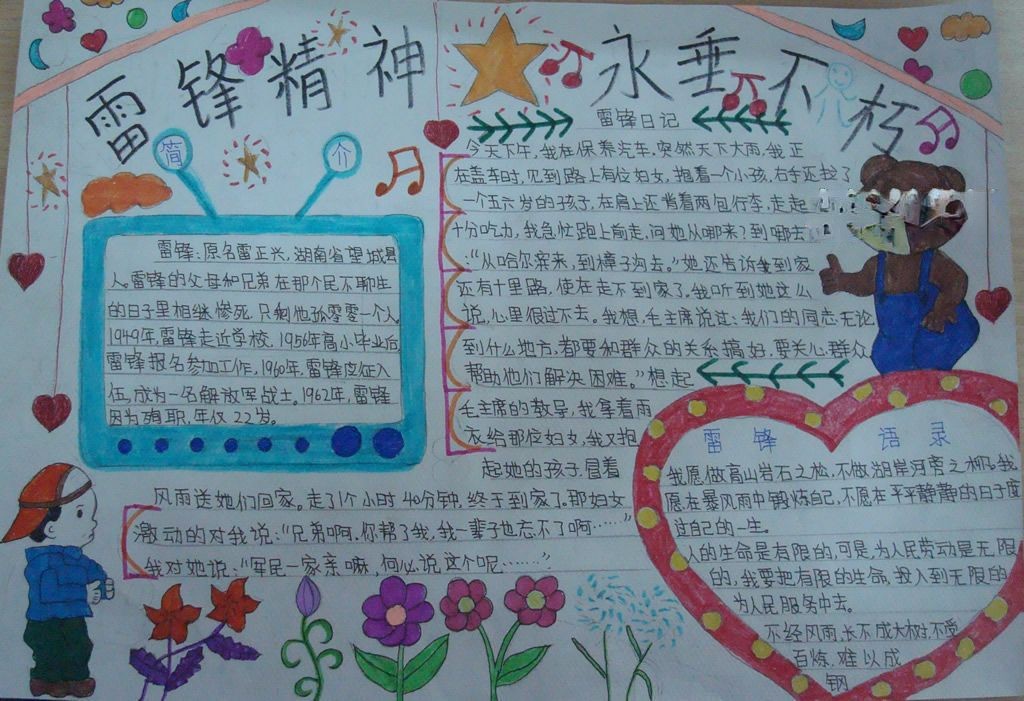 雷锋精神
永垂不朽
简介
雷锋,原名雷正兴,湖南省望城县
人。雷锋的父母和兄弟在那个民不聊生
的日子里相继惨死,只剩他孤零零一个人。
1949年,雷锋走近学校,1956年高小毕业后,
雷锋报名参加工作,1960年,雷锋应征入
伍,成为一名解放军战士。1962年,雷锋
因为殉职,年仅22岁。
雷锋日记
今天下午,我在保养汽车,突然天下大雨,我正
在盖车时,见到路上有位妇女,抱着一个小孩,右手还拉了
一个五六岁的孩子,在肩上还背着两包行李,走起
十分吃力,我急忙跑上前走,问她从哪来?到哪去
:“从哈尔滨来,到樟子沟去。”她还告诉我到家
还有十里路,使在走不到家了,我听到她这么
说,心里很过不去。我想,毛主席说过:我们的同志,无论
到什么地方,都要和群众的关系搞好,要关心群众
帮助他们解决困难。”想起
毛主席的教导,我拿着雨
衣给那位妇女,我又抱
起她的孩子,冒着
风雨送她们回家。走了1个小时40分钟,终于到家了,那妇女
激动的对我说:“兄弟啊,你帮了我,我一辈子也忘不了啊……”
我对她说:“军民一家亲嘛,何必说这个呢……”
雷锋语录
我愿做高山岩石之松,不做湖岸河旁之柳。我
愿在暴风雨中锻炼自己,不愿在平平静静的日子度
过自己的一生。
人的生命是有限的,可是,为人民劳动是无限
的,我要把有限的生命,投入到无限的
为人民服务中去。
不经风雨,长不成大树,不受
百炼,难以成
钢